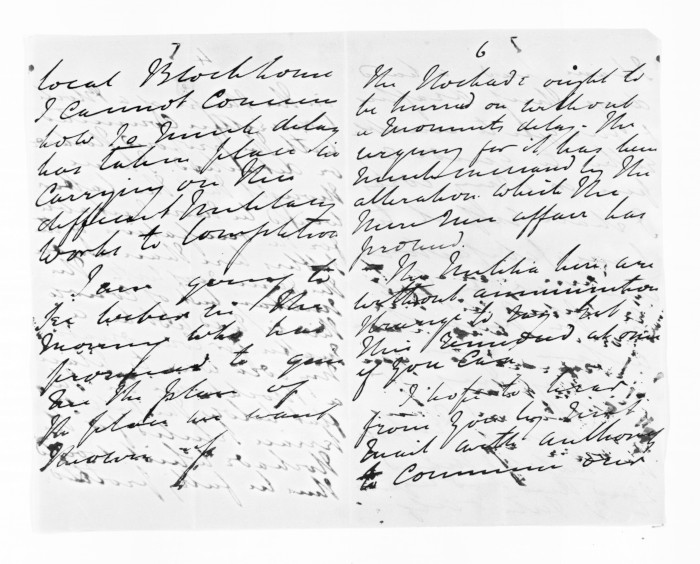 7
local Blockhouse
I cannot conceive
how so much delay
has taken place in
carrying on the
different Military
works to completion
I am going to
see in the
morning who has
promised to give
me the plan of
the place we want
Known of
6
The Stockade ought to
be hurried on without
a moments delay. The
urgency for it has been
much increased by the
alteration which the
affair has
produced.
The Militia here are
without ammunition
Strange to say. Get
this remedied at once
if you can
I hope to hear
from you by first
mail with authority
to commence our